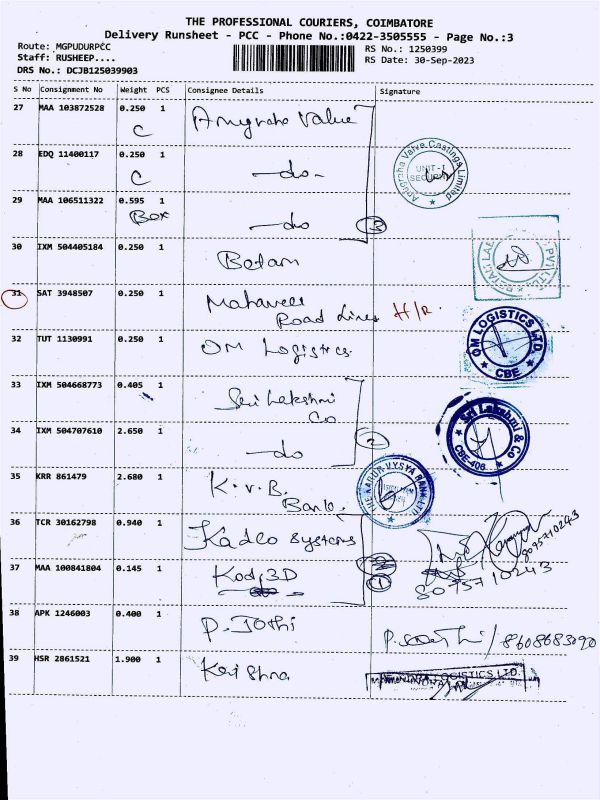 THE PROFESSIONAL COURIERS, COIMBATORE
Delivery Runsheet - PCC - Phone No.:0422-3505555 - Page No.:3
Route: MGPUDURPCC
Staff: RUSHEEP....
DRS No.: DCJB125039903
RS No.: 1250399
RS Date: 30-Sep-2023
S No Consignment No Weight PCS Consignee Details Signature
27 MAA 103872528 0.250 1 Anugraha Value
C
28 EDQ 11400117 0.250 1 -do-
C
Anugraha Valve Castings Limited
UNIT-I
SECURITY
29 MAA 106511322 0.595 1 -do 3
Box
30 IXM 504405184 0.250 1
31 SAT 3948507 0.250 1
Road Lines H/R
32 TUT 1130991 0.250 1 OM Logistics
OM LOGISTICS LTD.
CBE
33 IXM 504668773 0.405 1 Sri Lakshmi
Co
34 IXM 504707610 2.650 1 -do 2
Sri Lakshmi & Co
CBE-406
35 KRR 861479 2.680 1 K.V.B.
Bank
THE KARUR VYSYA BANK LTD
36 TCR 30162798 0.940 1 Systems
8075710243
37 MAA 100841804 0.145 1 3D 1
8075710243
38 APK 1246003 0.400 1 P. Jothi
39 HSR 2861521 1.900 1 Krishna
LOGISTICS LTD.